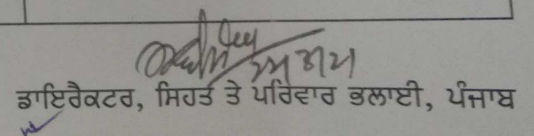 ਡਾਇਰੈਕਟਰ, ਸਿਹਤ ਤੇ ਪਰਿਵਾਰ ਭਲਾਈ, ਪੰਜਾਬ